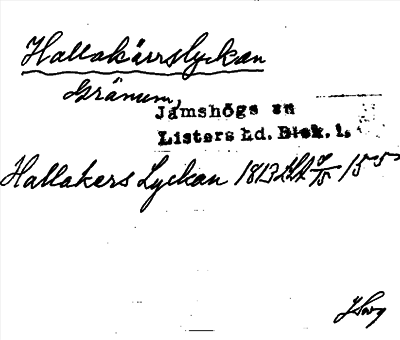 Hallakärrslyckan
Gränum,
Jämshögs sn
Listers hd. Blek. l.
Hallakers Lyckan 1813 155